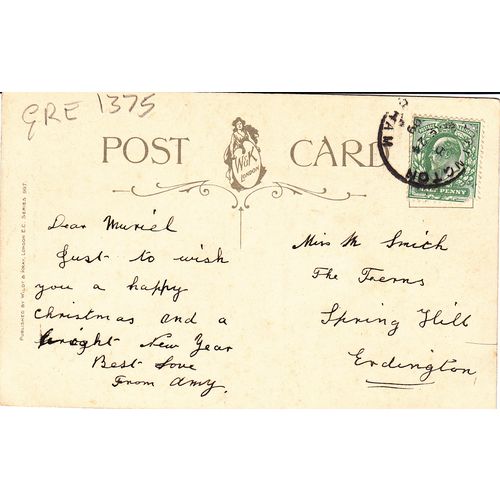 GRE 1375
POST CARD
W&K
LONDON
HALF PENNY
PUBLISHED BY WILDT & KRAY, LONDON E.C. SERIES
Dear Muriel
Just to wish
you a happy
Christmas and a
bright New Year
Best Love
From Amy.
Miss M Smith
The Ferns
Spring Hill
Erdington